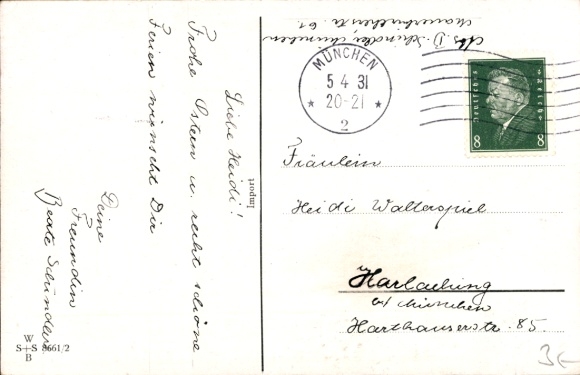 Liebe Heidi!
Frohe Ostern u. recht schöne
Ferien wünscht Dir
Deine
Freundin
Beate Schindler
W
S+S 8661/2
B
Import
Abs. B. Schindler, München
61
MÜNCHEN
5 4 31
20-21
2
Deutsches Reich
8 8
Fräulein
Heidi Wallerspiel
in Harlaching
bei München
Harthauserstr. 85.
3,-